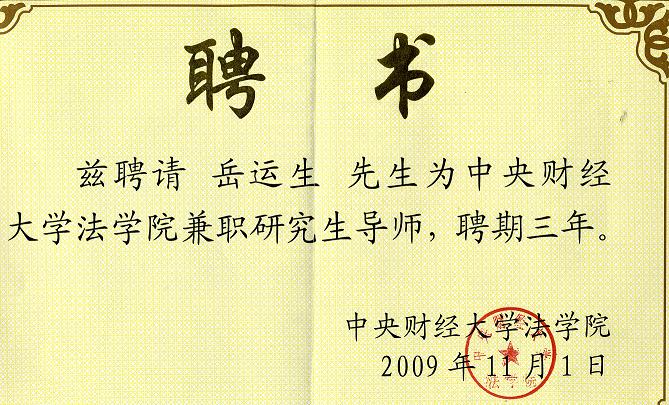 聘 书
兹聘请 岳运生 先生为中央财经
大学法学院兼职研究生导师，聘期三年。
中央财经大学法学院
2009年11月1日
中央财经大学
法学院